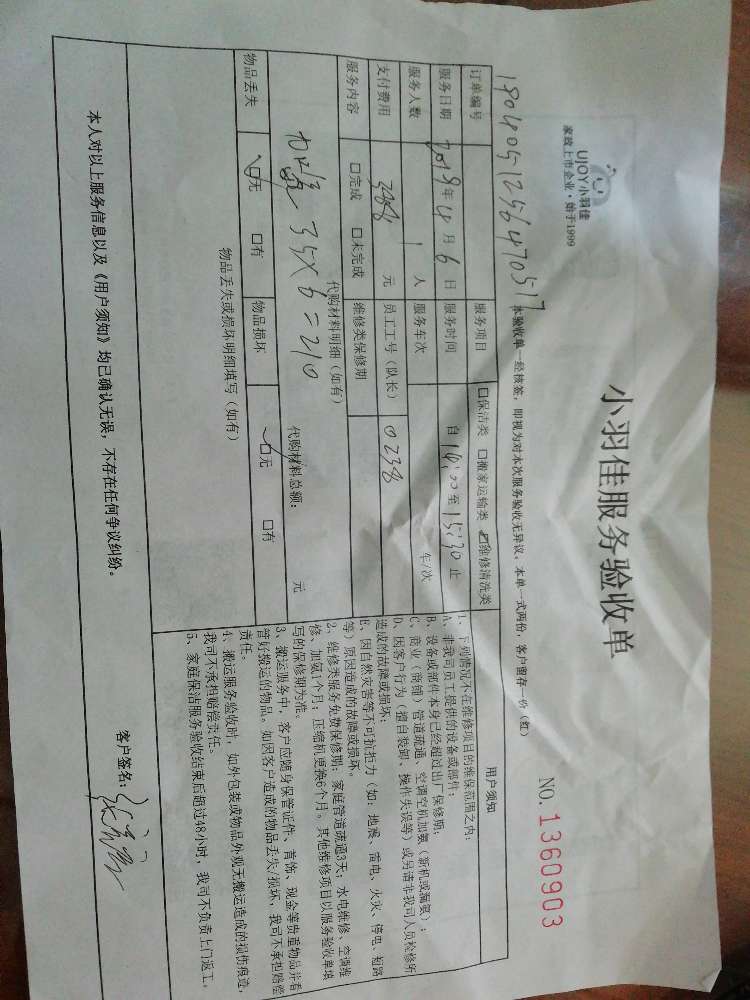 UJOY小羽佳
家政上市企业·始于1999
小羽佳服务验收单
NO. 1360903
1804051256470517
本验收单一经核签，即视为对本次服务验收无异议。本单一式两份，客户留存一份（红）
订单编号 服务项目 口保洁类 口搬家运输类 ☑维修清洗类
服务日期 2018年4月6日 服务时间 自14:00至15:30止
服务人数 1人 服务车次 车/次
支付费用 元 员工工号（队长） 0238
服务内容 口完成 口未完成 维修类保修期
代购材料明细（如有）
35×6=210
代购材料总额： 元
物品丢失 ☑无 口有 物品损坏 ☑无 口有
物品丢失或损坏明细填写（如有）
用户须知
1、下列情况不在维修项目的维保范围之内：
A、非我司员工提供的设备或部件；
B、设备或部件本身已经超过出厂保修期；
C、商业（商铺）管道疏通、空调空机加氨（新机或漏氨）；
D、因客户行为（擅自装卸、操作失误等）或另请非我司人员检修所
造成的故障或损坏；
E、因自然灾害等不可抗拒力（如：地震、雷电、火灾、停电、短路
等）原因造成的故障或损坏。
2、维修类服务免费保修期：家庭管道疏通3天；水电维修、空调维
修、加氨1个月；压缩机更换6个月。其他维修项目以服务验收单填
写的保修期为准。
3、搬运服务中，客户应随身保管证件、首饰、现金等贵重物品并看
管好搬运的物品。如因客户造成的物品丢失/损坏，我司不承担赔偿
责任。
4、搬运服务验收时，如外包装或物品外观无搬运造成的损伤痕迹，
我司不承担赔偿责任。
5、家庭保洁服务验收结束后超过48小时，我司不负责上门返工。
本人对以上服务信息以及《用户须知》均已确认无误，不存在任何争议纠纷。
客户签名：